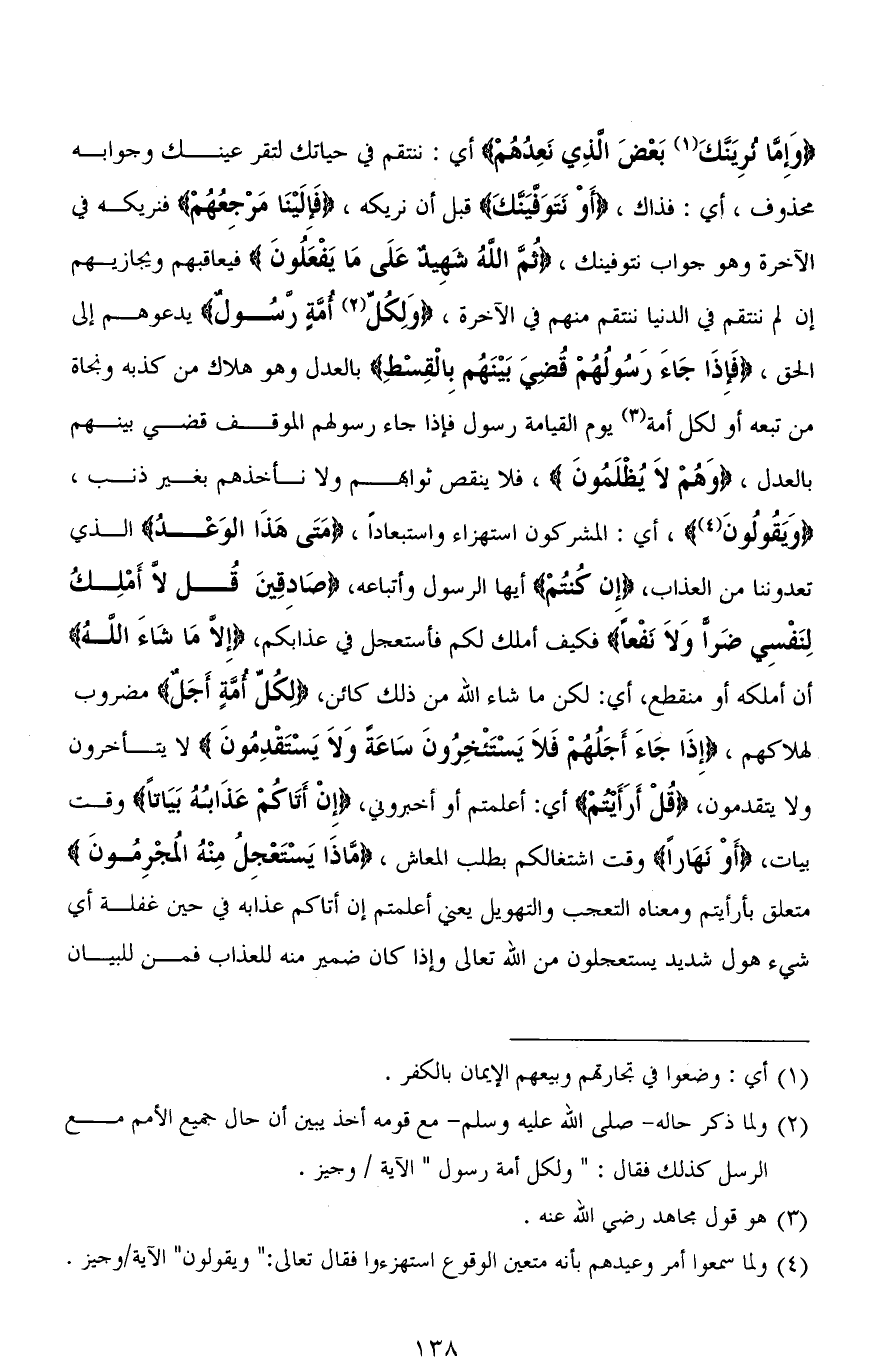 ﴿وَإِمَّا نُرِيَنَّكَ(١) بَعْضَ الَّذِي نَعِدُهُمْ﴾ أي : ننتقم في حياتك لتقر عينـــك وجوابـه
محذوف ، أي : فذاك ، ﴿أَوْ نَتَوَفَّيَنَّكَ﴾ قبل أن نريكه ، ﴿فَإِلَيْنَا مَرْجِعُهُمْ﴾ فنريكـه في
الآخرة وهو جواب نتوفينك ، ﴿ثُمَّ اللَّهُ شَهِيدٌ عَلَى مَا يَفْعَلُونَ ﴾ فيعاقبهم ويجازيـهم
إن لم ننتقم في الدنيا ننتقم منهم في الآخرة ، ﴿وَلِكُلِّ(٢) أُمَّةٍ رَّسُـولٌ﴾ يدعوهـم إلى
الحق ، ﴿فَإِذَا جَاءَ رَسُولُهُمْ قُضِيَ بَيْنَهُم بِالْقِسْطِ﴾ بالعدل وهو هلاك من كذبه ونجاة
من تبعه أو لكل أمة(٣) يوم القيامة رسول فإذا جاء رسولهم الموقـف قضـي بينـهم
بالعدل ، ﴿وَهُمْ لاَ يُظْلَمُونَ ﴾ ، فلا ينقص ثوابهـم ولا نـأخذهم بغـير ذنـب ،
﴿وَيَقُولُونَ(٤)﴾ ، أي : المشركون استهزاء واستبعاداً ، ﴿مَتَى هَذَا الوَعْـدُ﴾ الـذي
تعدوننا من العذاب، ﴿إِن كُنتُمْ﴾ أيها الرسول وأتباعه، ﴿صَادِقِينَ قُـل لاَّ أَمْلِـكُ
لِنَفْسِي ضَراًّ وَلاَ نَفْعاً﴾ فكيف أملك لكم فأستعجل في عذابكم، ﴿إِلاَّ مَا شَاءَ اللَّـهُ﴾
أن أملكه أو منقطع، أي: لكن ما شاء الله من ذلك كائن، ﴿لِكُلِّ أُمَّةٍ أَجَلٌ﴾ مضروب
لهلاكهم ، ﴿إِذَا جَاءَ أَجَلُهُمْ فَلاَ يَسْتَئْخِرُونَ سَاعَةً وَلاَ يَسْتَقْدِمُونَ ﴾ لا يتـأخرون
ولا يتقدمون، ﴿قُلْ أَرَأَيْتُمْ﴾ أي: أعلمتم أو أخبروني، ﴿إِنْ أَتَاكُمْ عَذَابُهُ بَيَاتاً﴾ وقـت
بيات، ﴿أَوْ نَهَاراً﴾ وقت اشتغالكم بطلب المعاش ، ﴿مَّاذَا يَسْتَعْجِلُ مِنْهُ الْمُجْرِمُـونَ ﴾
متعلق بأرأيتم ومعناه التعجب والتهويل يعني أعلمتم إن أتاكم عذابه في حين غفلـة أي
شيء هول شديد يستعجلون من الله تعالى وإذا كان ضمير منه للعذاب فمـن للبيـان
(١) أي : وضعوا في تجارتهم وبيعهم الإيمان بالكفر .
(٢) ولما ذكر حاله- صلى الله عليه وسلم- مع قومه أخذ يبين أن حال جميع الأمم مـع
الرسل كذلك فقال : " ولكل أمة رسول " الآية / وجيز .
(٣) هو قول مجاهد رضي الله عنه .
(٤) ولما سمعوا أمر وعيدهم بأنه متعين الوقوع استهزءوا فقال تعالى:" ويقولون" الآية/وجيز .
١٣٨